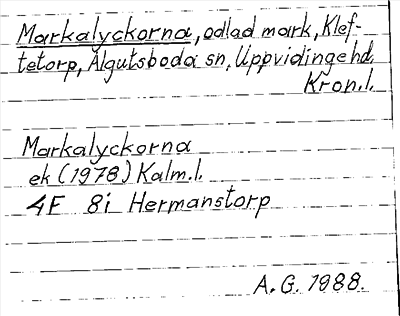 Markalyckorna, odlad mark, Klef-
tetorp, Älgutsboda sn, Uppvidinge hd,
Kron.l.
Markalyckorna
ek (1978) Kalm.l.
4F 8i Hermanstorp
A.G. 1988.